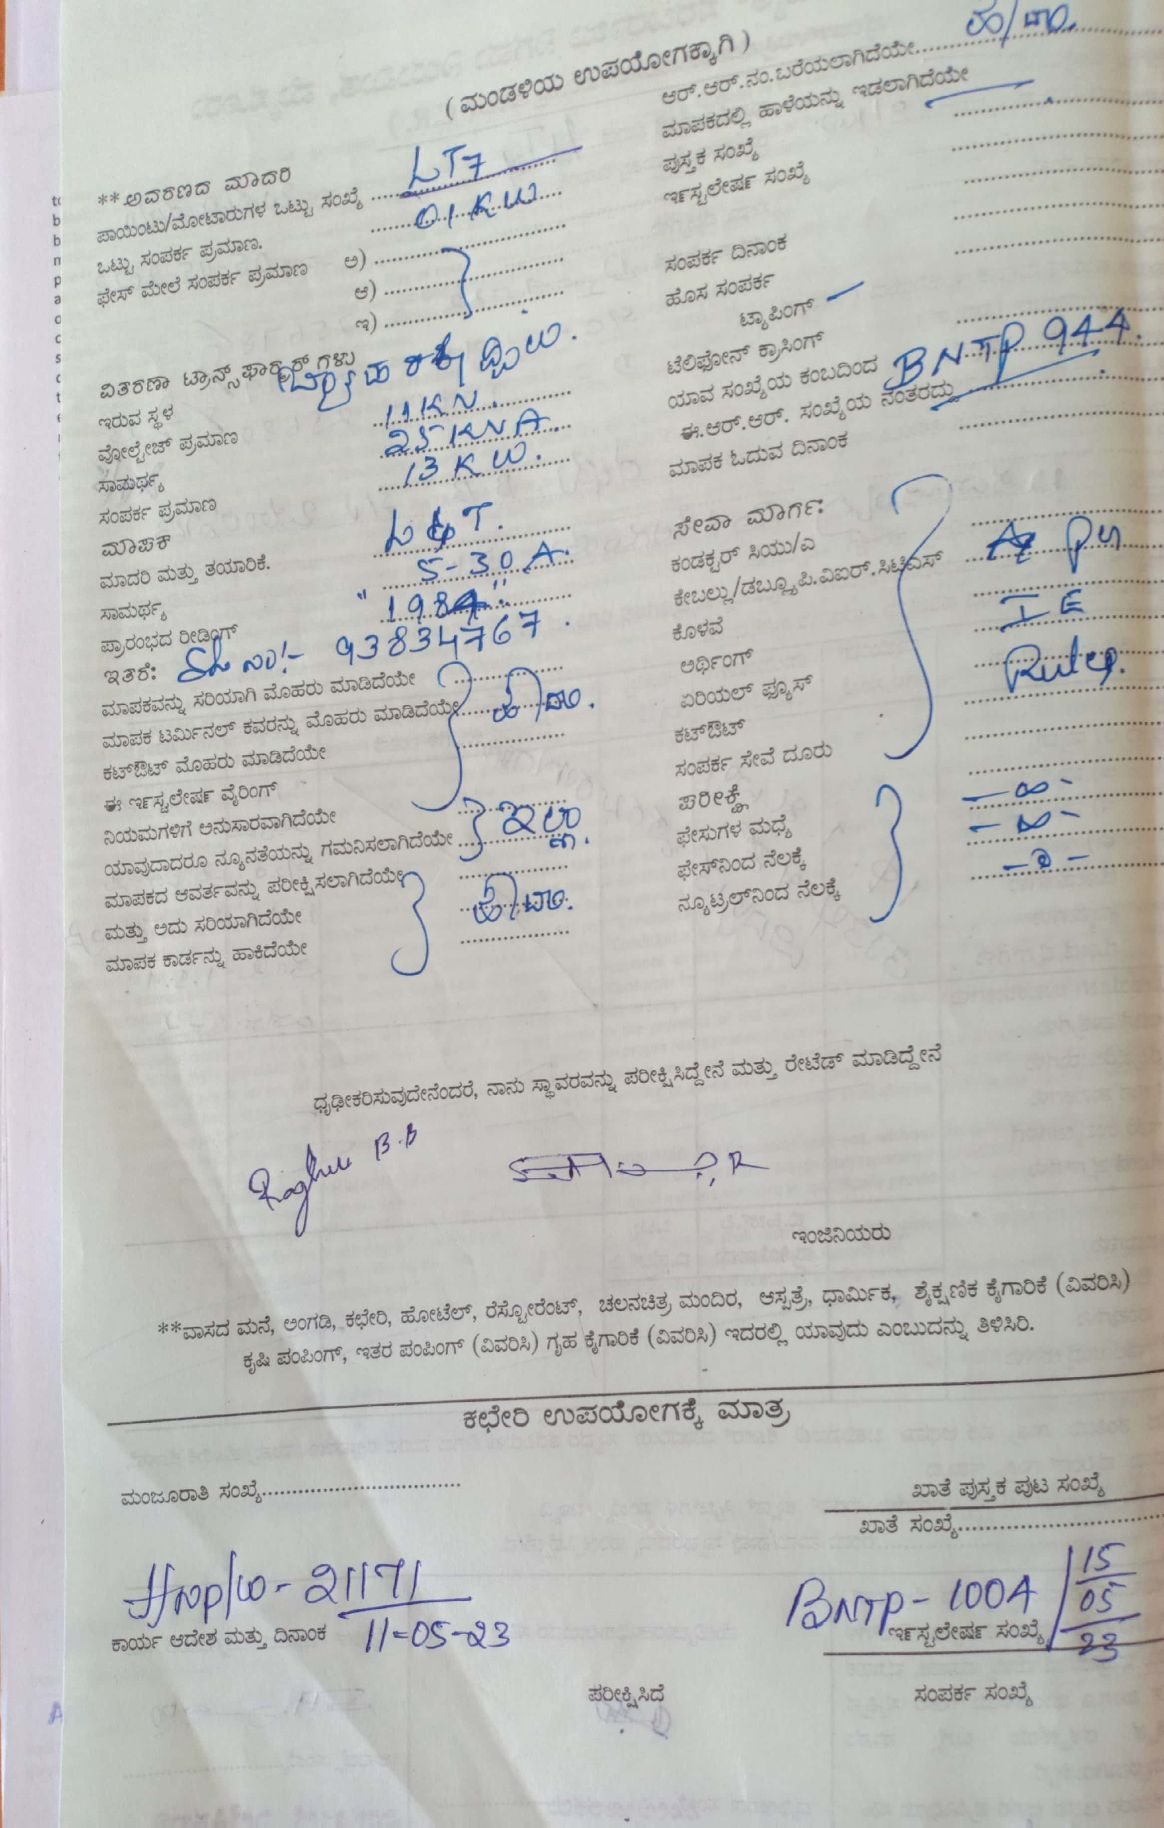 ( ಮಂಡಳಿಯ ಉಪಯೋಗಕ್ಕಾಗಿ )
**ಆವರಣದ ಮಾದರಿ LT7
ಪಾಯಿಂಟು/ಮೋಟಾರುಗಳ ಒಟ್ಟು ಸಂಖ್ಯೆ
ಒಟ್ಟು ಸಂಪರ್ಕ ಪ್ರಮಾಣ. 01 KW
ಫೇಸ್ ಮೇಲೆ ಸಂಪರ್ಕ ಪ್ರಮಾಣ ಅ)
ಆ)
ಇ)
ವಿತರಣಾ ಟ್ರಾನ್ಸ್‌ಫಾರ್ಮರ್‌ಗಳು
ಇರುವ ಸ್ಥಳ
ವೋಲ್ಟೇಜ್ ಪ್ರಮಾಣ 11KV.
ಸಾಮರ್ಥ್ಯ 25KVA.
ಸಂಪರ್ಕ ಪ್ರಮಾಣ 13 KW.
ಮಾಪಕ
ಮಾದರಿ ಮತ್ತು ತಯಾರಿಕೆ. L & T.
ಸಾಮರ್ಥ್ಯ 5-30 A.
ಪ್ರಾರಂಭದ ರೀಡಿಂಗ್ "1984"
ಇತರೆ: Sl No:- 93834767.
ಮಾಪಕವನ್ನು ಸರಿಯಾಗಿ ಮೊಹರು ಮಾಡಿದೆಯೇ
ಮಾಪಕ ಟರ್ಮಿನಲ್ ಕವರನ್ನು ಮೊಹರು ಮಾಡಿದೆಯೇ ಹೌದು.
ಕಟ್‌ಔಟ್ ಮೊಹರು ಮಾಡಿದೆಯೇ
ಈ ಇನ್‌ಸ್ಟಲೇಷನ್ ವೈರಿಂಗ್
ನಿಯಮಗಳಿಗೆ ಅನುಸಾರವಾಗಿದೆಯೇ
ಯಾವುದಾದರೂ ನ್ಯೂನತೆಯನ್ನು ಗಮನಿಸಲಾಗಿದೆಯೇ ಇಲ್ಲ.
ಮಾಪಕದ ಆವರ್ತವನ್ನು ಪರೀಕ್ಷಿಸಲಾಗಿದೆಯೇ
ಮತ್ತು ಅದು ಸರಿಯಾಗಿದೆಯೇ ಹೌದು.
ಮಾಪಕ ಕಾರ್ಡನ್ನು ಹಾಕಿದೆಯೇ
ಆರ್.ಆರ್.ನಂ.ಬರೆಯಲಾಗಿದೆಯೇ ಹೌದು.
ಮಾಪಕದಲ್ಲಿ ಹಾಳೆಯನ್ನು ಇಡಲಾಗಿದೆಯೇ
ಪುಸ್ತಕ ಸಂಖ್ಯೆ
ಇನ್‌ಸ್ಟಲೇಷನ್ ಸಂಖ್ಯೆ
ಸಂಪರ್ಕ ದಿನಾಂಕ
ಹೊಸ ಸಂಪರ್ಕ
ಟ್ಯಾಪಿಂಗ್
ಟೆಲಿಫೋನ್ ಕ್ರಾಸಿಂಗ್
ಯಾವ ಸಂಖ್ಯೆಯ ಕಂಬದಿಂದ BNTP 944.
ಈ.ಆರ್.ಆರ್. ಸಂಖ್ಯೆಯ ನಂತರದ್ದು
ಮಾಪಕ ಓದುವ ದಿನಾಂಕ
ಸೇವಾ ಮಾರ್ಗ:
ಕಂಡಕ್ಟರ್ ಸಿಯು/ಎ
ಕೇಬಲ್ಲು/ಡಬ್ಲ್ಯೂಪಿ.ವಿಐಆರ್.ಸಿಟಿಎಸ್ As Per
ಕೊಳವೆ IE
ಅರ್ಥಿಂಗ್ Rules.
ಏರಿಯಲ್ ಫ್ಯೂಸ್
ಕಟ್‌ಔಟ್
ಸಂಪರ್ಕ ಸೇವೆ ದೂರು
ಪರೀಕ್ಷೆ
ಫೇಸುಗಳ ಮಧ್ಯೆ - ∞ -
ಫೇಸ್‌ನಿಂದ ನೆಲಕ್ಕೆ - ∞ -
ನ್ಯೂಟ್ರಲ್‌ನಿಂದ ನೆಲಕ್ಕೆ
ಧೃಢೀಕರಿಸುವುದೇನೆಂದರೆ, ನಾನು ಸ್ಥಾವರವನ್ನು ಪರೀಕ್ಷಿಸಿದ್ದೇನೆ ಮತ್ತು ರೇಟೆಡ್ ಮಾಡಿದ್ದೇನೆ
Raghu B.B
ಇಂಜಿನಿಯರು
**ವಾಸದ ಮನೆ, ಅಂಗಡಿ, ಕಛೇರಿ, ಹೋಟೆಲ್, ರೆಸ್ಟೋರೆಂಟ್, ಚಲನಚಿತ್ರ ಮಂದಿರ, ಆಸ್ಪತ್ರೆ, ಧಾರ್ಮಿಕ, ಶೈಕ್ಷಣಿಕ ಕೈಗಾರಿಕೆ (ವಿವರಿಸಿ)
ಕೃಷಿ ಪಂಪಿಂಗ್, ಇತರ ಪಂಪಿಂಗ್ (ವಿವರಿಸಿ) ಗೃಹ ಕೈಗಾರಿಕೆ (ವಿವರಿಸಿ) ಇದರಲ್ಲಿ ಯಾವುದು ಎಂಬುದನ್ನು ತಿಳಿಸಿರಿ.
ಕಛೇರಿ ಉಪಯೋಗಕ್ಕೆ ಮಾತ್ರ
ಮಂಜೂರಾತಿ ಸಂಖ್ಯೆ
ಖಾತೆ ಪುಸ್ತಕ ಪುಟ ಸಂಖ್ಯೆ
ಖಾತೆ ಸಂಖ್ಯೆ
21171
11-05-23
ಕಾರ್ಯ ಆದೇಶ ಮತ್ತು ದಿನಾಂಕ
BNTP-1004 / 15
05
23
ಇನ್‌ಸ್ಟಲೇಷನ್ ಸಂಖ್ಯೆ
ಪರೀಕ್ಷಿಸಿದೆ
ಸಂಪರ್ಕ ಸಂಖ್ಯೆ